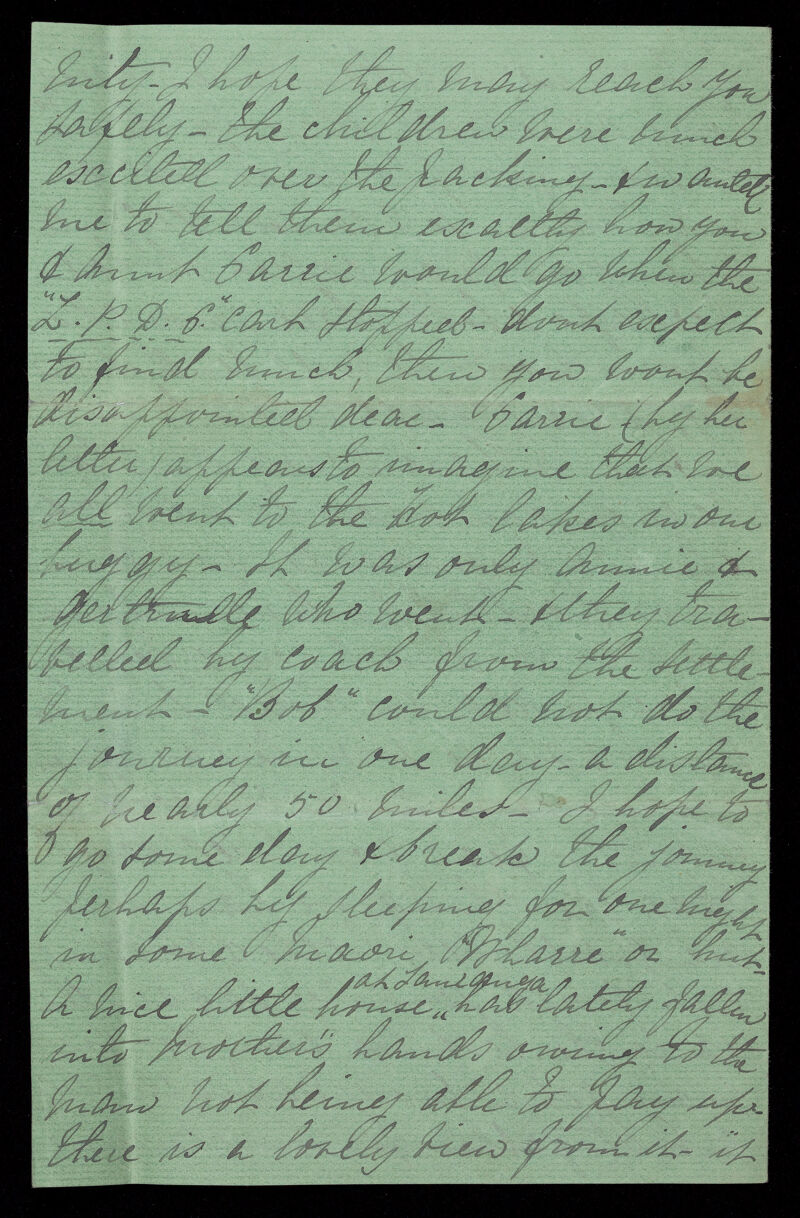 nity - I hope they may reach you
safely - the children were much
excited over the packing - & wanted
me to tell them exactly how you
& Aunt Carrie would go when the
"L. P. D. C." cart stopped - dont expect
to find much, then you wont be
disappointed dear - Carrie (by her
letter) appears to imagine that we
all went to the Hot Lakes in our
buggy - It was only Annie &
Gertrude who went - & they tra-
velled by coach from the settle-
ment - "Bob" could not do the
journey in one day - a distance
of nearly 50 miles - I hope to
go some day & break the journey
perhaps by sleeping for one night
in some Maori "Wharre" or hut -
at Tauranga
A nice little house " has lately fallen
into Mother's hands owing to the
man not being able to pay up -
there is a lovely view from it - it